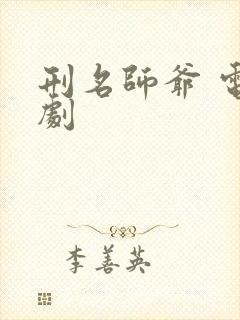 刑名師爺 電
劇
李善英